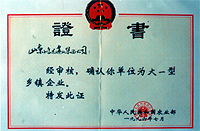 證書
山东
经审核，确认你单位为大一型
乡镇企业。
特发此证
中华人民共和国农业部
一九九六年七月